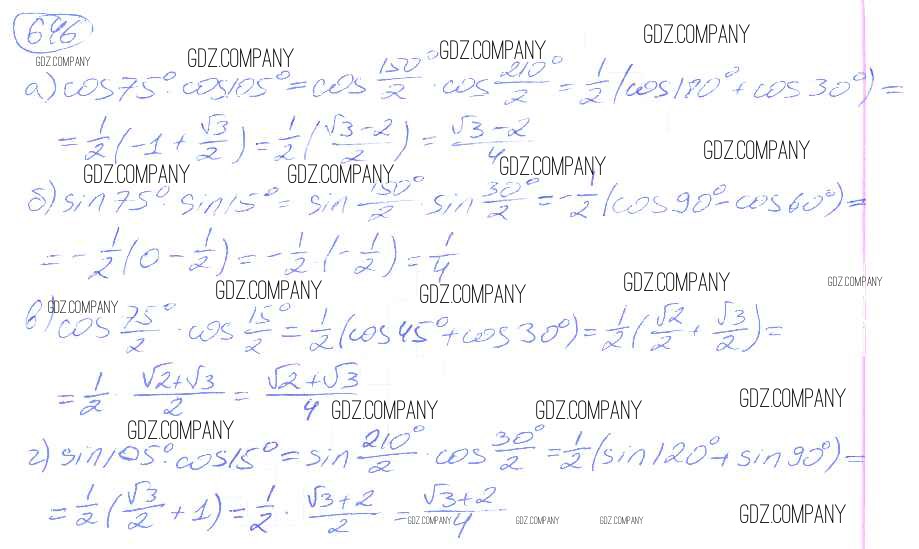 646
GDZ.COMPANY GDZ.COMPANY GDZ.COMPANY GDZ.COMPANY
а) cos75°·cos105° = cos 150°/2 · cos 210°/2 = 1/2 (cos180° + cos30°) =
= 1/2 (-1 + √3/2) = 1/2 (√3-2/2) = √3-2/4
GDZ.COMPANY GDZ.COMPANY GDZ.COMPANY GDZ.COMPANY
б) sin75°·sin15° = sin 150°/2 · sin 30°/2 = -1/2 (cos90° - cos60°) =
= -1/2 (0 - 1/2) = -1/2 · (-1/2) = 1/4
GDZ.COMPANY GDZ.COMPANY GDZ.COMPANY GDZ.COMPANY GDZ.COMPANY
в) cos 75°/2 · cos 15°/2 = 1/2 (cos45° + cos30°) = 1/2 (√2/2 + √3/2) =
= 1/2 · √2+√3/2 = √2+√3/4
GDZ.COMPANY GDZ.COMPANY GDZ.COMPANY GDZ.COMPANY
г) sin105°·cos15° = sin 210°/2 · cos 30°/2 = 1/2 (sin120° + sin90°) =
= 1/2 (√3/2 + 1) = 1/2 · √3+2/2 = √3+2/4
GDZ.COMPANY GDZ.COMPANY GDZ.COMPANY GDZ.COMPANY